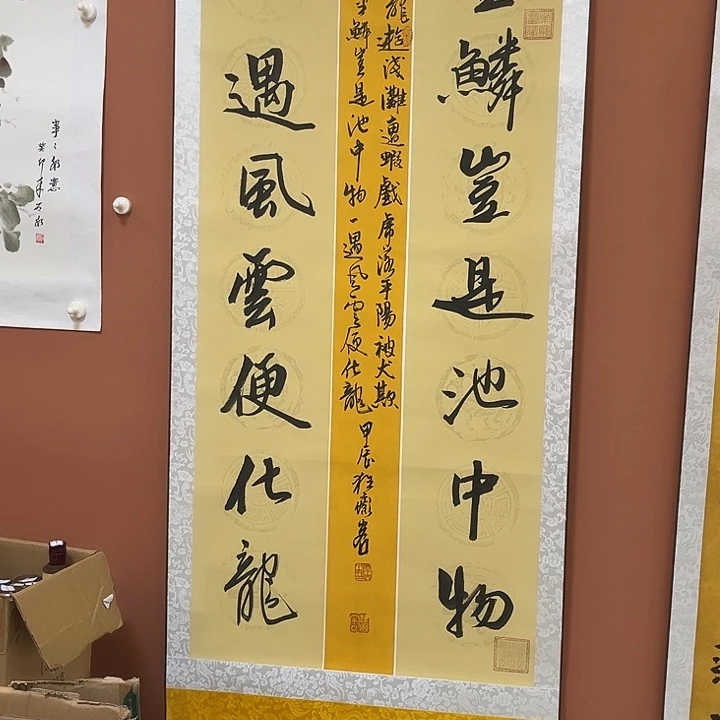 鱗豈是池中物
龍遊淺灘遭蝦戲虎落平陽被犬欺
金鱗豈是池中物一遇風雲便化龍
甲辰狂
遇風雲便化龍
事々如意
癸卯年